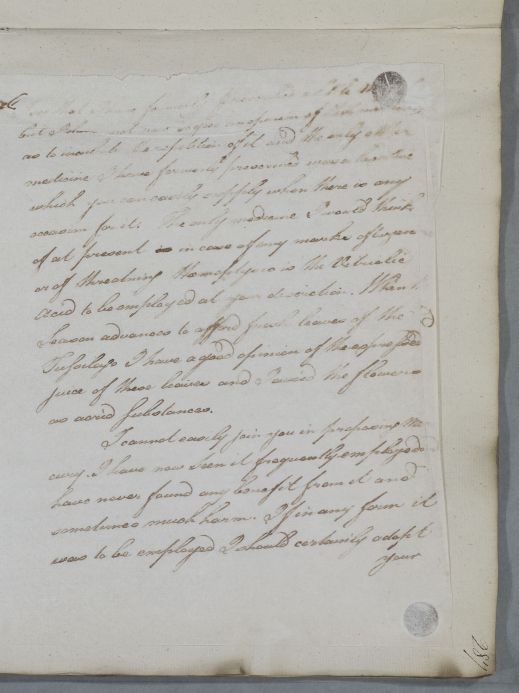 formerly prescribed
but I shall not now so good an opinion of that medicine
as to insist on the repetition of it and the only other
medicine I have formerly prescribed was a
which you can easily supply when there is any
occasion for it. The only medicine I would think
of at present is in case of any marks of
or of threatning Haemoptysis is the Vitriolic
Acid to be employed at your discretion. When the
Season advances to afford fresh leaves of the
Tussilago I have a good opinion of the expressed
juice of these leaves and I avoid the flowers
as acrid Substances.
I cannot easily join you in proposing Mer
cury. I have now seen it frequently employed
have never found any benefit from it and
sometimes much harm. If in any form it
was to be employed I should certainly adopt
your